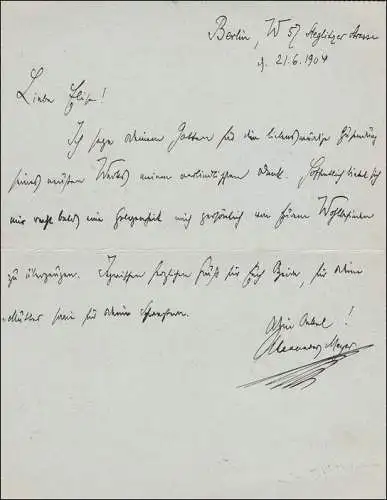 Berlin, W 57 Steglitzer Strasse
d. 21.6.1904
Liebe Elise!
Ich sage Deinem Gatten für die liebenswürdige Zusendung
seines neusten Werkes meinen verbindlichsten Dank. Hoffentlich bietet sich
mir recht bald eine Gelegenheit mich persönlich von Eurem Wohlbefinden
zu überzeugen. Inzwischen herzlichen Gruß für Euch Beide, für Deine
Mutter sowie für Deine Schwestern.
Dein Onkel!
Alexander Meyer